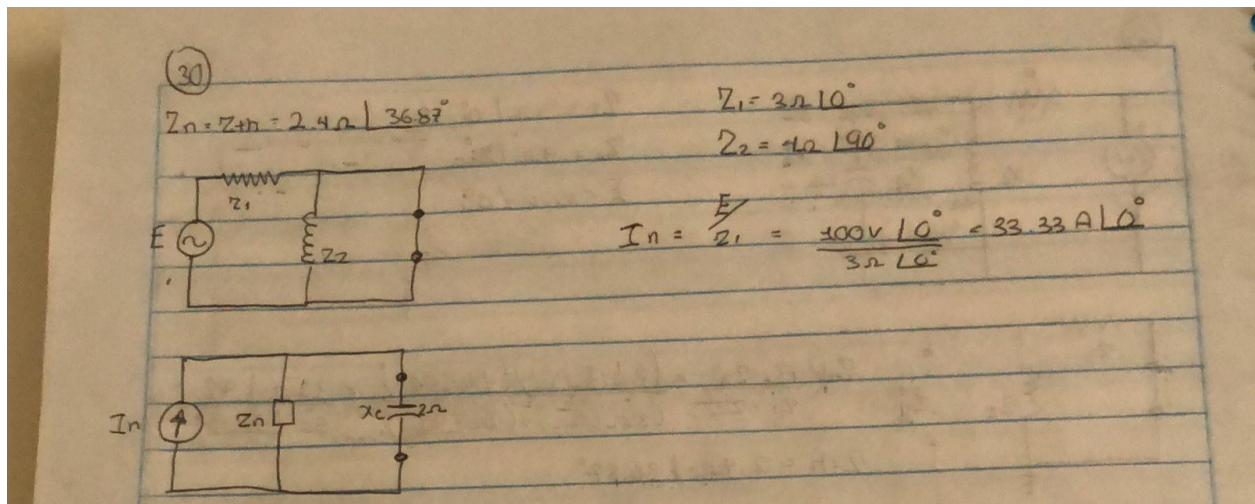 30
Zn = Zth = 2.4Ω ∠36.87°
Z₁ = 3Ω ∠0°
Z₂ = 4Ω ∠90°
Z₁
E
Z₂
In = E/Z₁ = 100V ∠0° / 3Ω ∠0° = 33.33 A ∠0°
In
Zn
Xc
2Ω